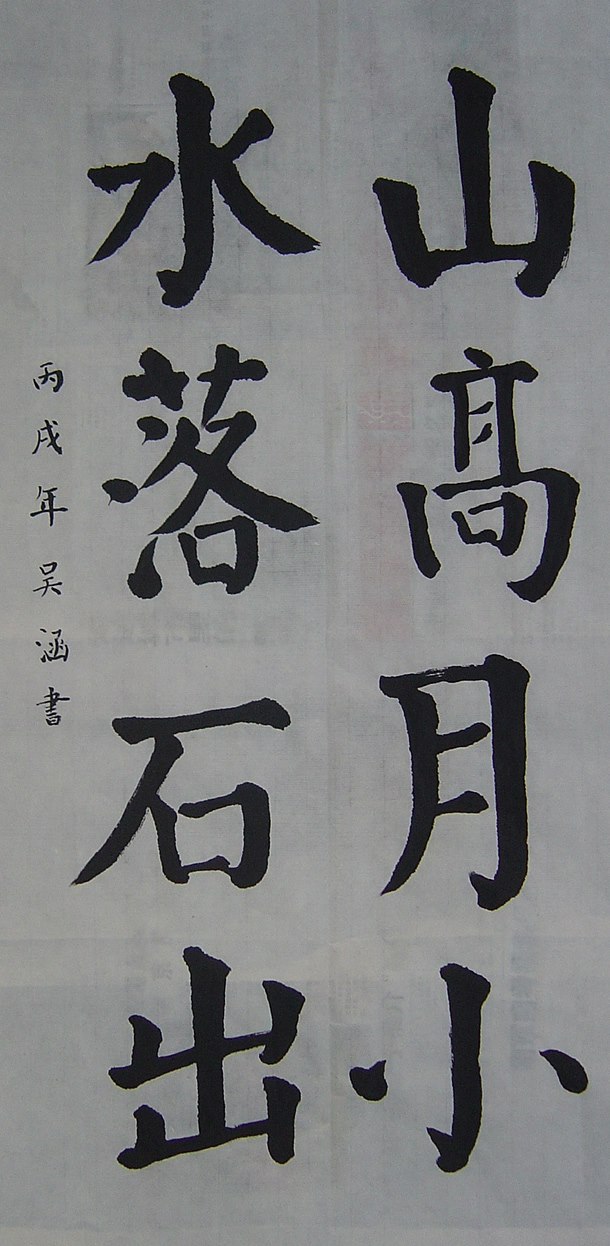 山髙月小
水落石出
丙戌年吴涵書